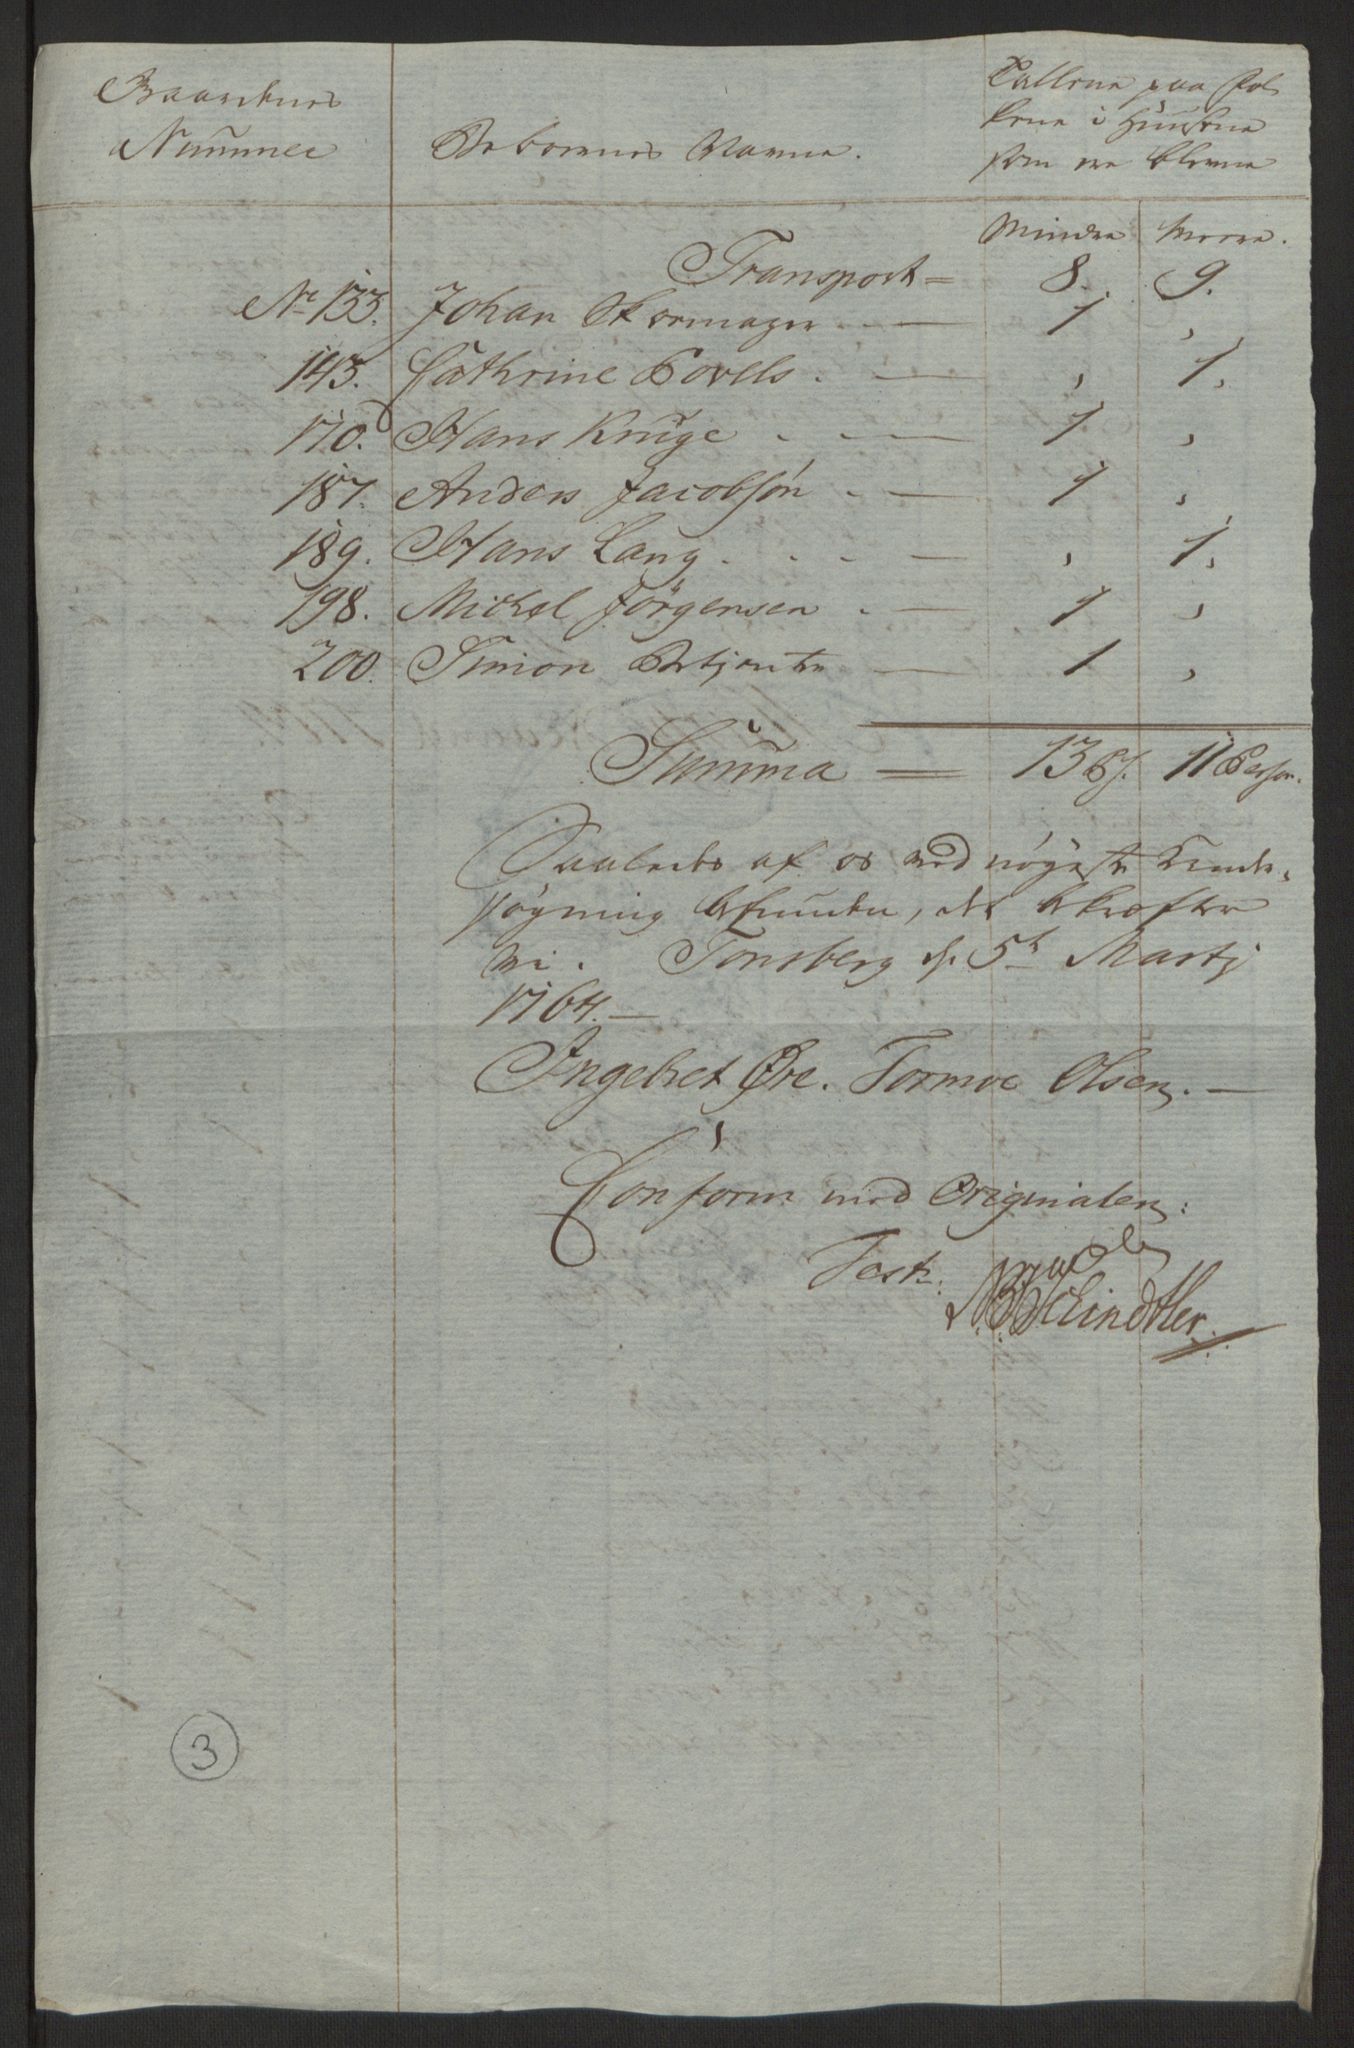 Gaardenes
Nummer
Beboernes Navne.
Tallene paa Fol-
kene i Huusene
som ere blevne
Mindre Meere.
Transport = 8. 9.
No 133. Johan Skomager. — 1 ,
143. Cathrine Povels. — , 1,
170. Hans Kruge . . — 1 ,
187. Anders Jacobsøn . — 1 ,
189. Hans Lang . . . — , 1,
198. Michel Jørgensen . — 1 ,
200. Simon Betjente — 1 ,
Summa = 13 Ps. 11 Person.
Saaledes af os med nøyeste Efter-
søgning befunden, det bekræfter
vi. Tonsberg d. 5te Martj
1764. —
Ingebret Øre. Tormoe Olsen. —
Conform med Originalen:
Test:
Schindtler
3